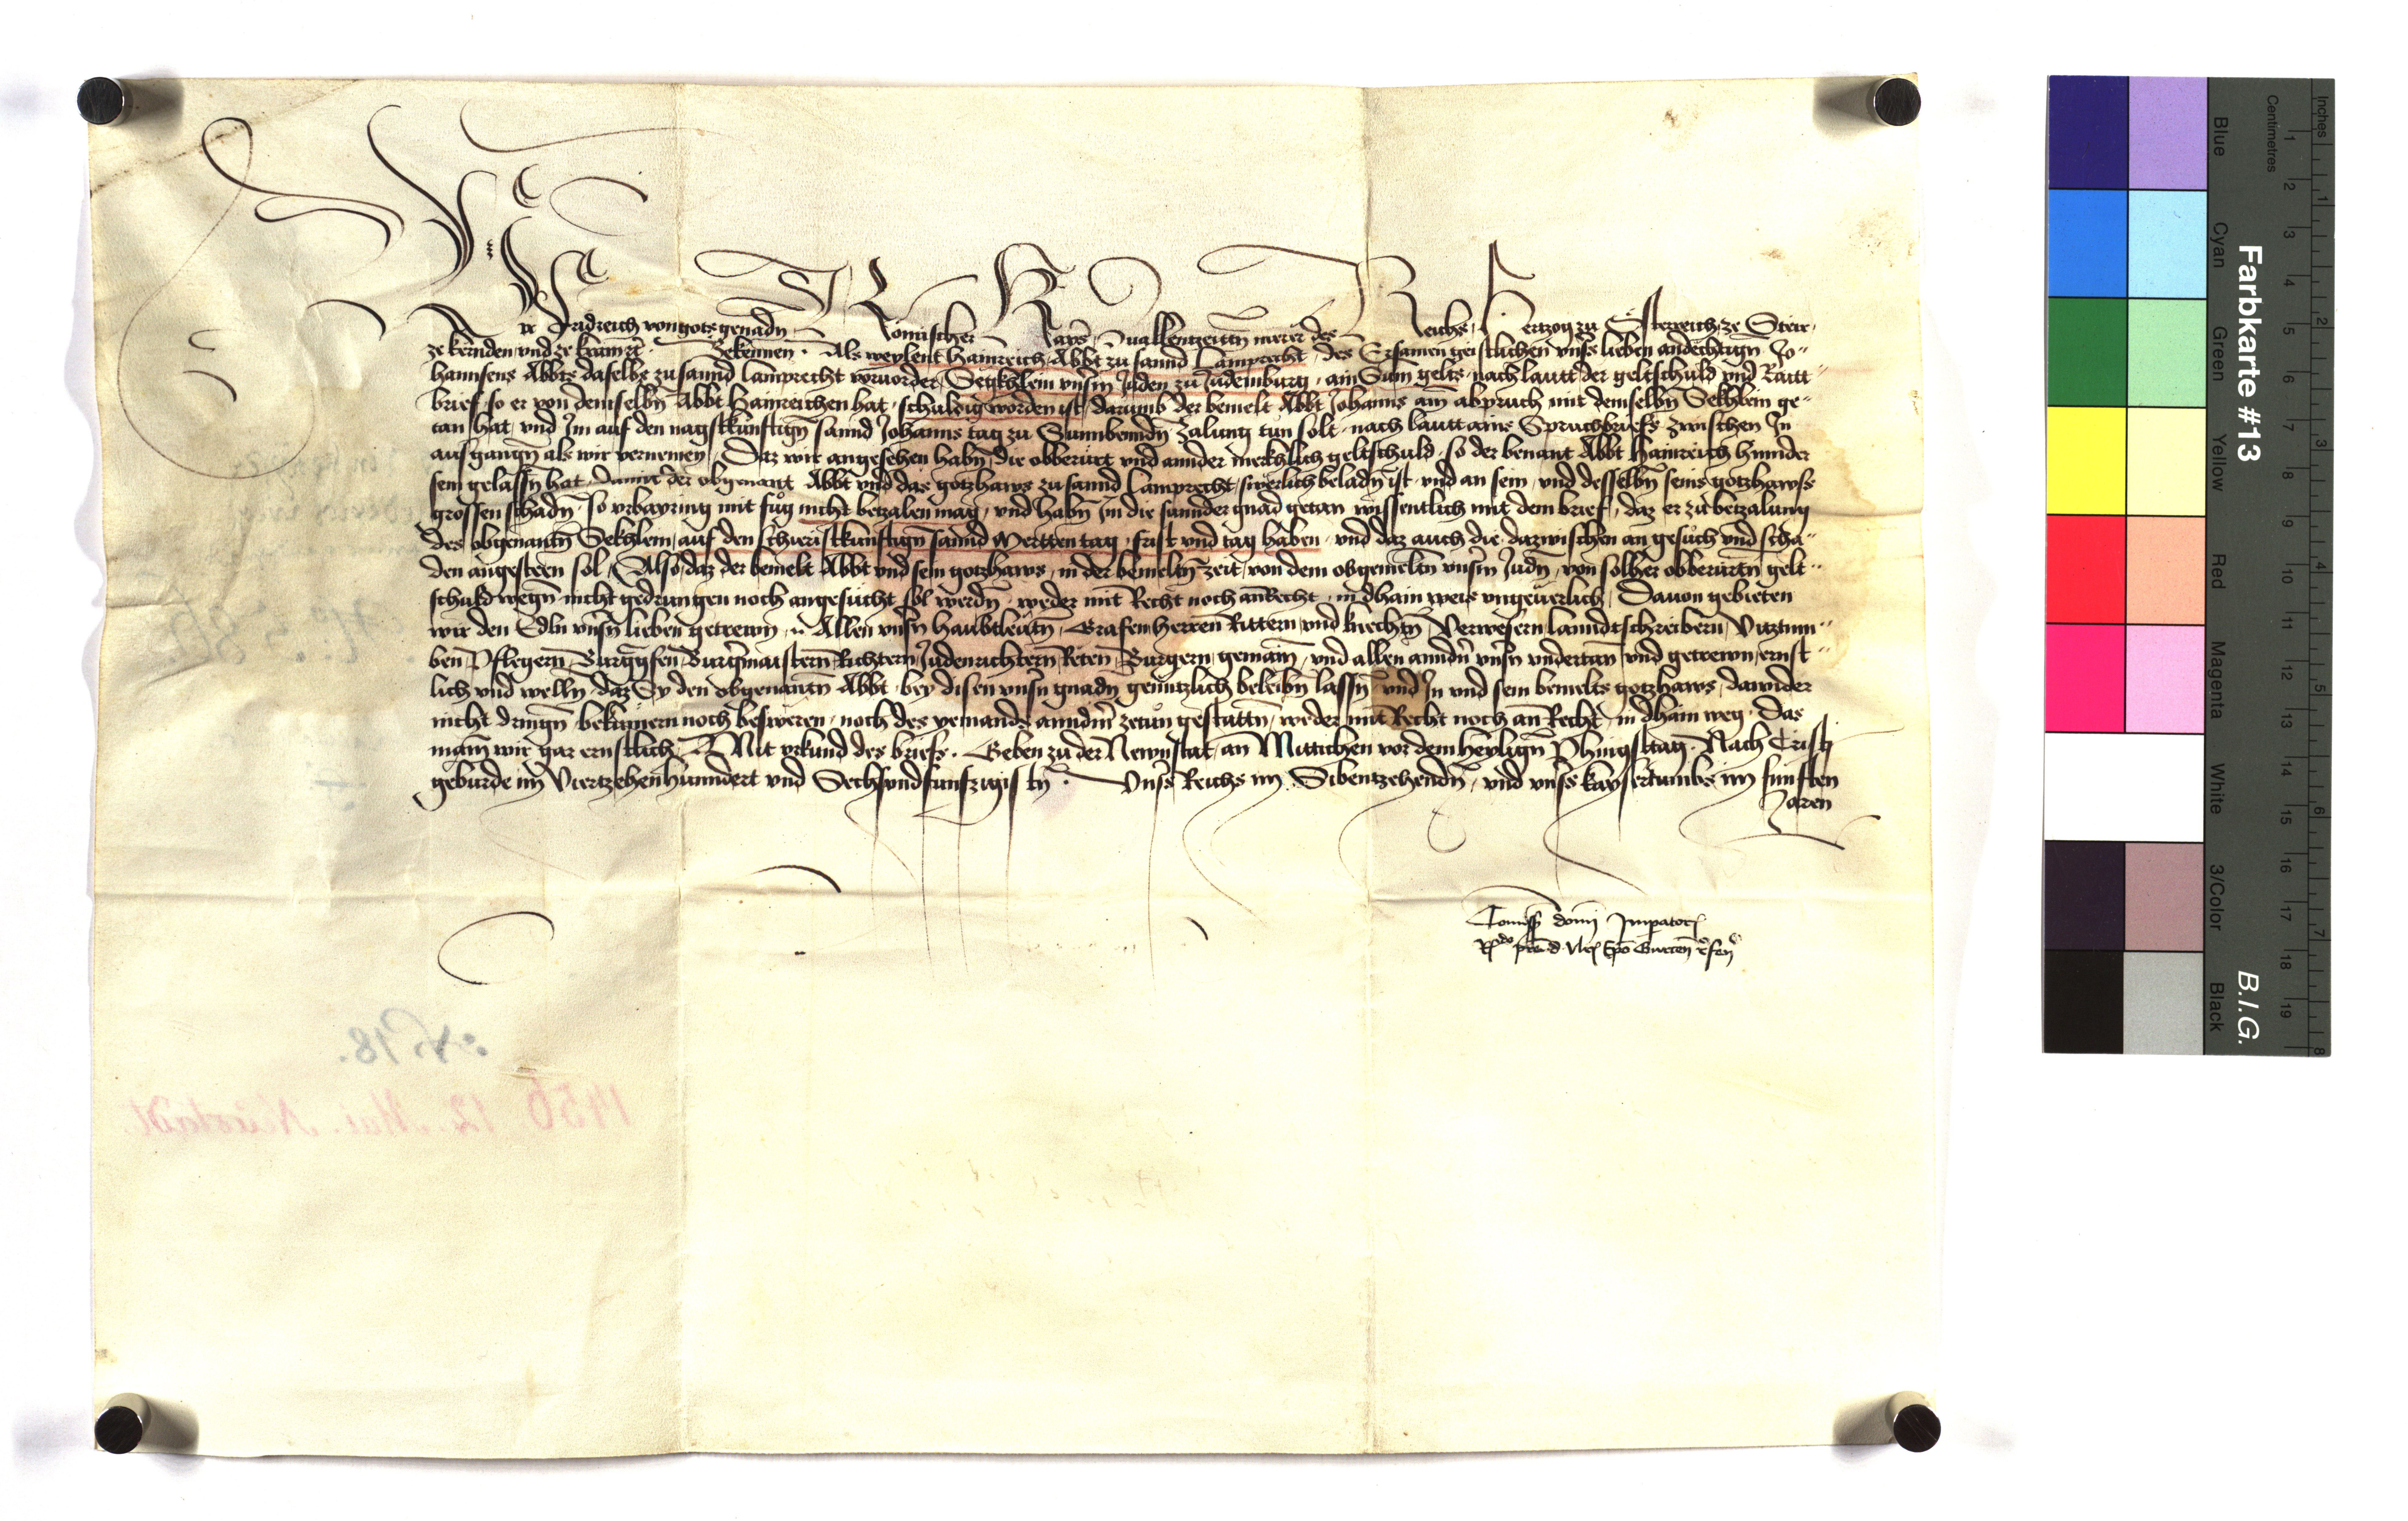 Wir Fridreich von gots genadn Romischer Kayser zuallenntzeittn merer des Reichs Hertzog zu Österreich ze Steir
ze kernden und ze krain etc. Bekennen. Als weylent Hainreich Abbt zu sannd Lamprecht des Ersamen geistlichen unsers lieben andechtign Jo¬
hannsens Abbts daselbs zu sannd Lamprecht vorvorder Sekhlein unserm Juden zu Judemburg ain Sum gelts nach lautt der geltschuld und Rautt
brief so er von demselbn Abbt Hainreichen hat schuldig worden ist darumb der bemelt Abbt Johanns ain abpruch mit demselbn Sekhlein ge¬
tan hat und Im auf den nagstkunftign sannd Johanns tag zu Sunnbenndn Zalung tun solt nach lautt ains Spruchbriefs zwischen In
ausgangn als wir vernemen Daz wir angesehen habn die obberurt und annder merkhlich geltschuld so der benant Abbt Hainreich hinnder
sein gelassn hat damit der obgenant Abbt und das gotzhaws zu sannd Lamprecht swerlich beladn ist und an sein und desselbn seins gotzhawss
grossen schadn so urbaring mit fůg nicht betzalen mag und habn Im die sunnder gnad getan wissentlich mit dem brief daz er zu betzalung
des obgenantn Sekhlein auf den schieristkunftign sannd Mertten tag frist und tag haben und daz auch die dazwischen an gesůch und scha¬
den angesteen sol Also daz der bemelt Abbt und sein gotzhaws in der bemeltn zeit von dem obgemeltn unserm Judn von solher obberurtn gelt¬
schuld wegn nicht gedrungen noch angesucht sol werdn weder mit Recht noch an Recht in dhain weis ungeverlich Davon gebieten
wir den Edln unsern lieben getrewn N. Allen unsern haubtleutn Grafen Herren Rittern und knechtn Verwesern lanndtschreibern Vitztum¬
ben Pflegern Burggrefen Burgermaistern Richtern Judenrichtern Reten Burgern gemain und allen anndern unsern undertan und getrewn ernst¬
lich und welln daz Sy den obgenantn Abbt bey disen unsern gnadn genntzlich beleibn lassn und In und sein bemelts gotzhaws dawider
nicht dringn bekumern noch besweren noch des yemands anndern zetůn gestattn weder mit Recht noch an Recht in dhain weg. Das
main wir gar ernstlich Mit urkund des briefs. Geben zu der Newnstat an Mittichen vor dem heyligen Phingsttag. Nach Cristi
geburde im Viertzehenhunndert und Sechsundfunfzigistn. Unsers Reichs im Sibentzehendn und unsers kaysertumbs im funften
Jaren
Commissio domini Imperatoris
Rdo pre d. Ulr. Epo Gurcen refente
N. 18.
1456. 12. Mai. Neustadt.
Farbkarte #13
B.I.G.
Inches
Centimetres
Blue
Cyan
Green
Yellow
Red
Magenta
White
3/Color
Black
1 2 3 4 5 6 7 8 9 10 11 12 13 14 15 16 17 18 19
1 2 3 4 5 6 7 8